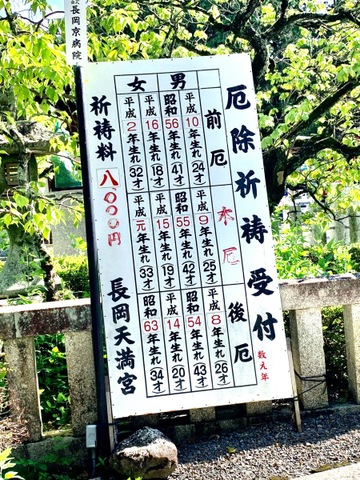 長岡京病院
厄除祈祷受付
数え年
前厄
本厄
後厄
男
女
平成10年生れ24才
昭和56年生れ41才
平成16年生れ18才
平成2年生れ32才
平成9年生れ25才
昭和55年生れ42才
平成15年生れ19才
平成元年生れ33才
平成8年生れ26才
昭和54年生れ43才
平成14年生れ20才
昭和63年生れ34才
祈祷料
八〇〇〇円
長岡天満宮